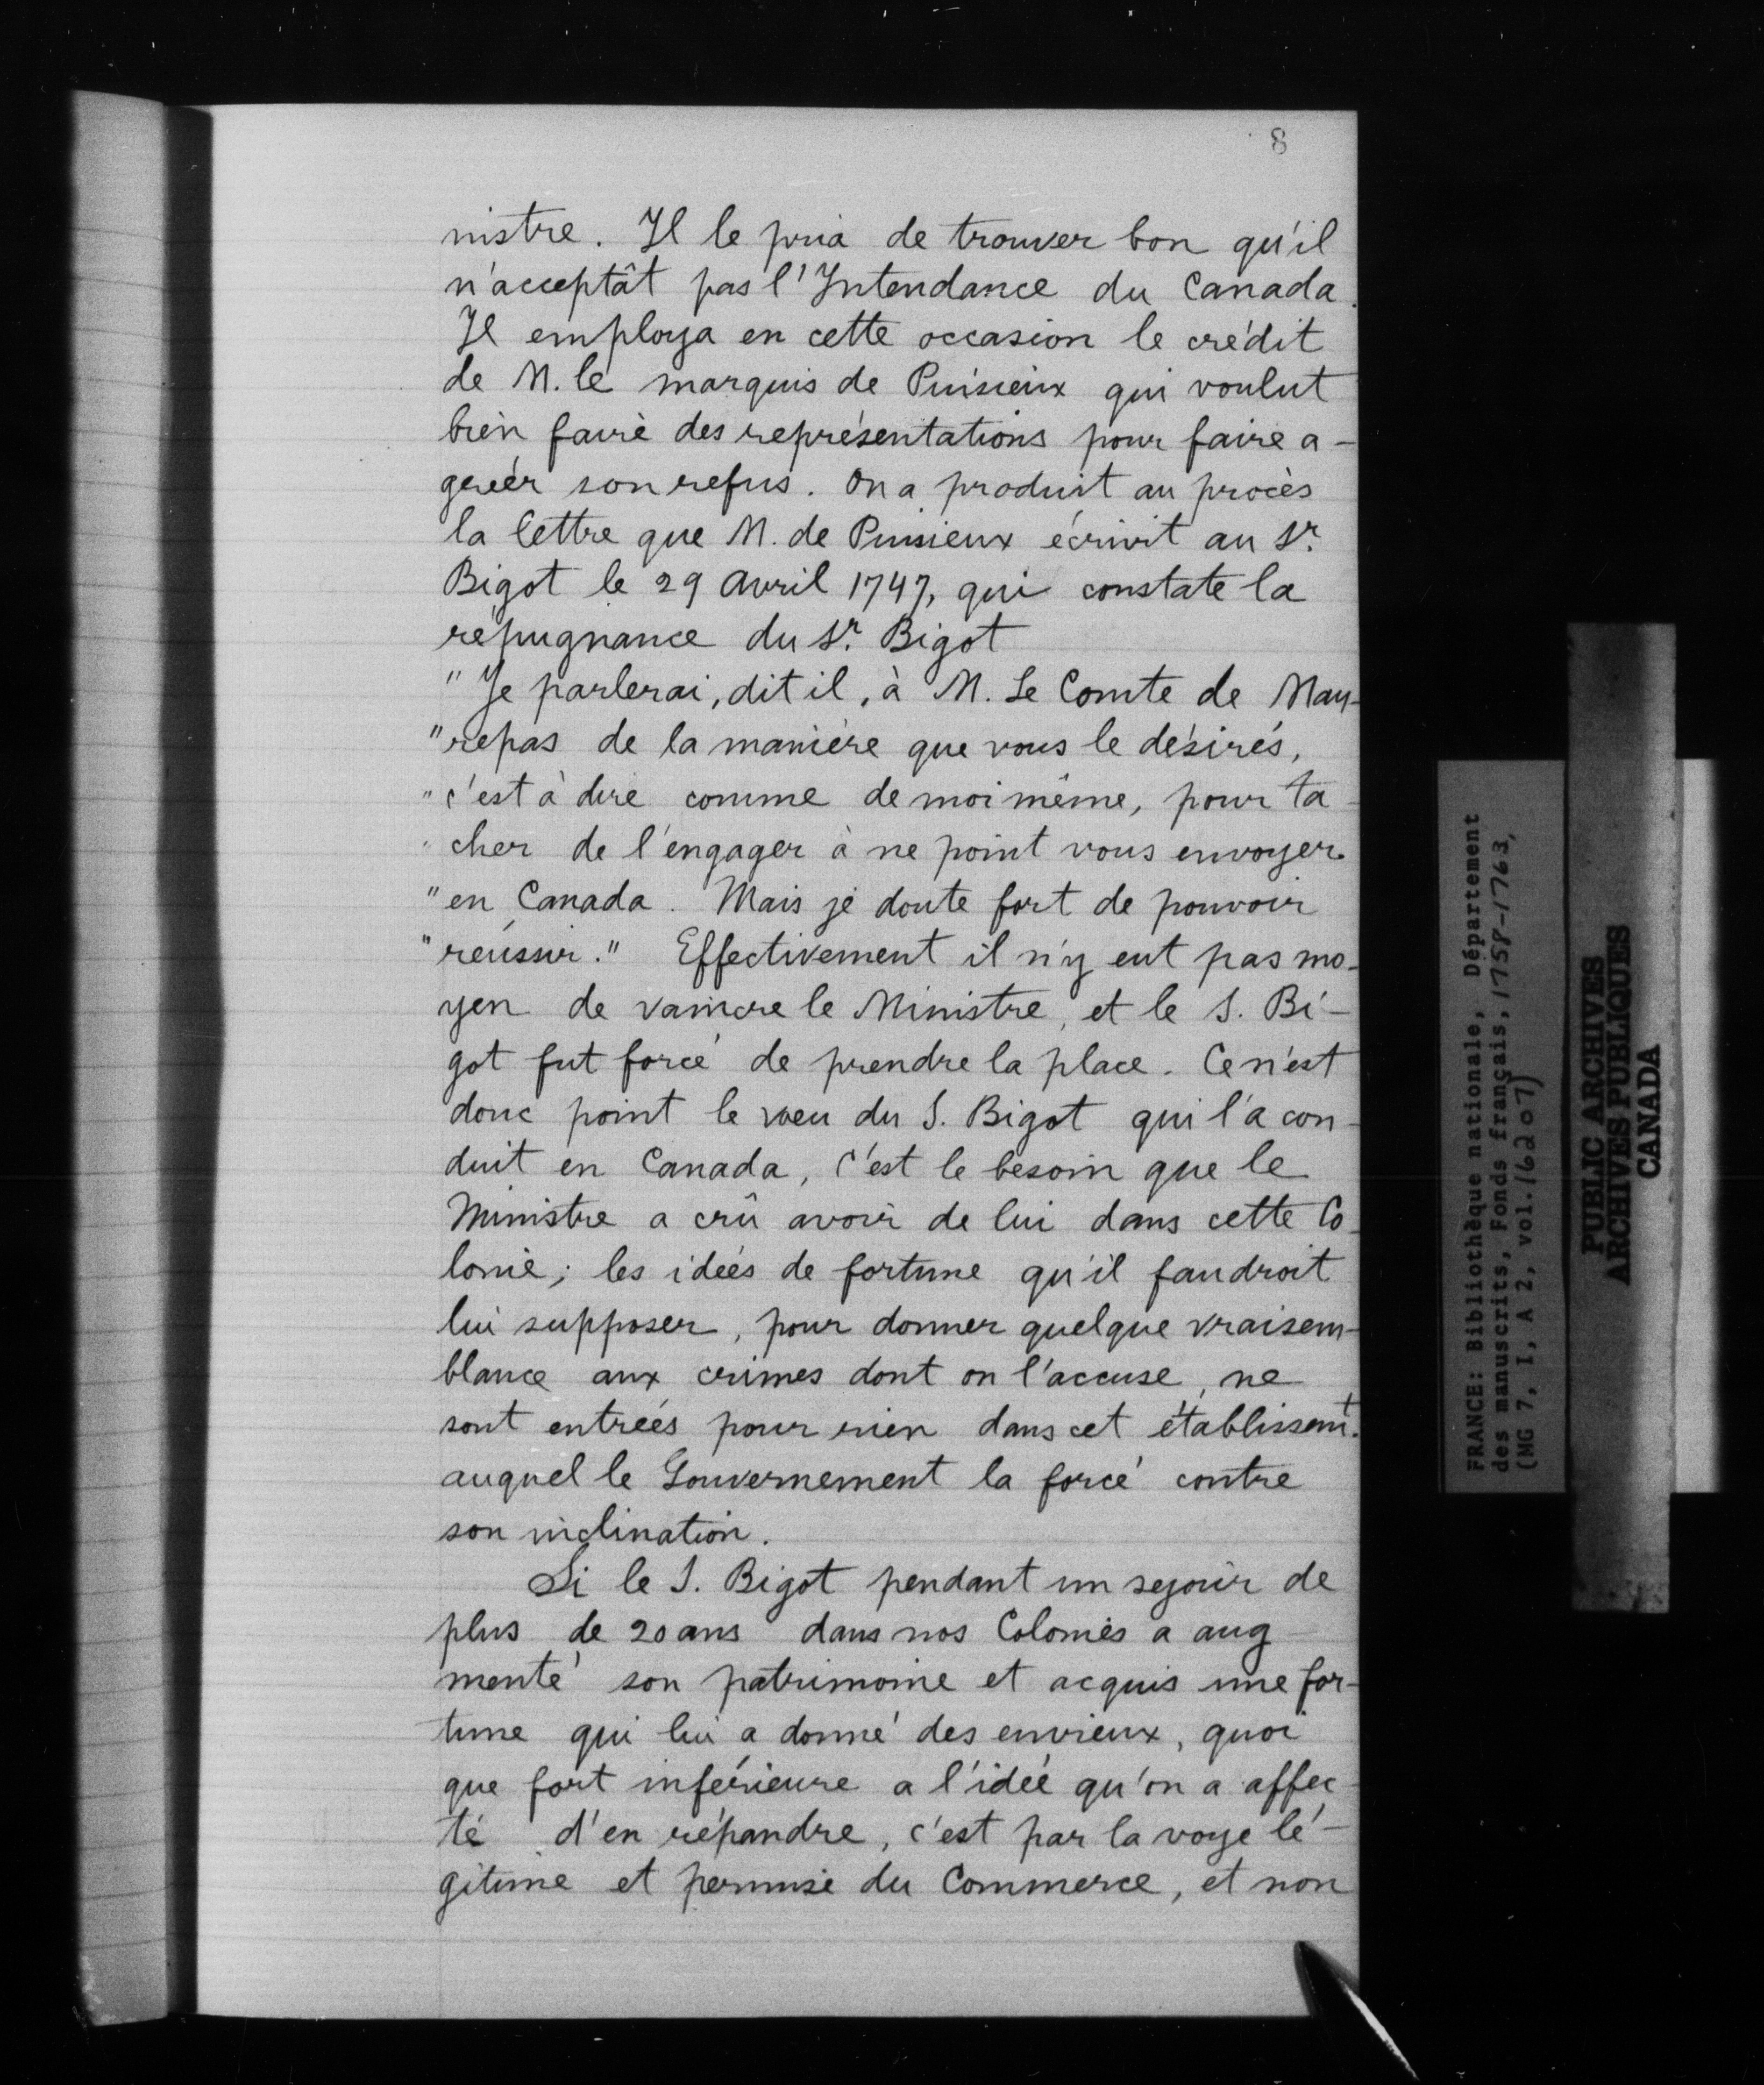 8
nistre. Il le pria de trouver bon qu'il
n'acceptât pas l'Intendance du Canada.
Il employa en cette occasion le crédit
de M. le marquis de Puisieux qui voulut
bien faire des représentations pour faire a-
gréer son refus. On a produit au procès
la lettre que M. de Puisieux écrivit au Sr.
Bigot le 29 Avril 1747, qui constate la
répugnance du Sr. Bigot
"Je parlerai, dit il, à M. Le Comte de Mau-
"repas de la manière que vous le désirés,
"c'est à dire comme de moi même, pour ta-
"cher de l'engager à ne point vous envoyer
"en Canada. Mais je doute fort de pouvoir
"réussir." Effectivement il n'y eut pas mo-
yen de vaincre le Ministre, et le S. Bi-
got fut forcé de prendre la place. Ce n'est
donc point le vœu du S. Bigot qui l'a con-
duit en Canada, c'est le besoin que le
Ministre a crû avoir de lui dans cette Co-
lonie; les idées de fortune qu'il faudroit
lui supposer, pour donner quelque vraisem-
blance aux crimes dont on l'accuse, ne
sont entrées pour rien dans cet établissemt.
auquel le Gouvernement la forcé contre
son inclination.
Si le S. Bigot pendant un sejour de
plus de 20 ans dans nos Colonies a aug-
menté son patrimoine et acquis une for-
tune qui lui a donné des envieux, quoi
que fort inférieure a l'idée qu'on a affec-
té d'en répandre, c'est par la voye lé-
gitime et permise du Commerce, et non
FRANCE: Bibliothèque nationale, Département
des manuscrits, Fonds français, 1758-1763,
(MG 7, I, A 2, vol. 16207)
PUBLIC ARCHIVES
ARCHIVES PUBLIQUES
CANADA